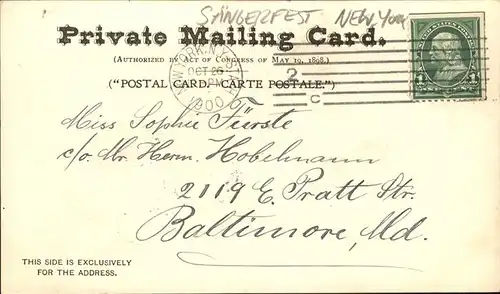 SÄNGERFEST NEW YORK
Private Mailing Card.
(AUTHORIZED BY ACT OF CONGRESS OF MAY 19, 1898.)
("POSTAL CARD, CARTE POSTALE.")
OCT 26
PM
1900
2
C
1 1
Miss Sophie Fürste
c/o. Mr. Herm. Hobelmann
2119 E. Pratt Str.
Baltimore, Md.
THIS SIDE IS EXCLUSIVELY
FOR THE ADDRESS.